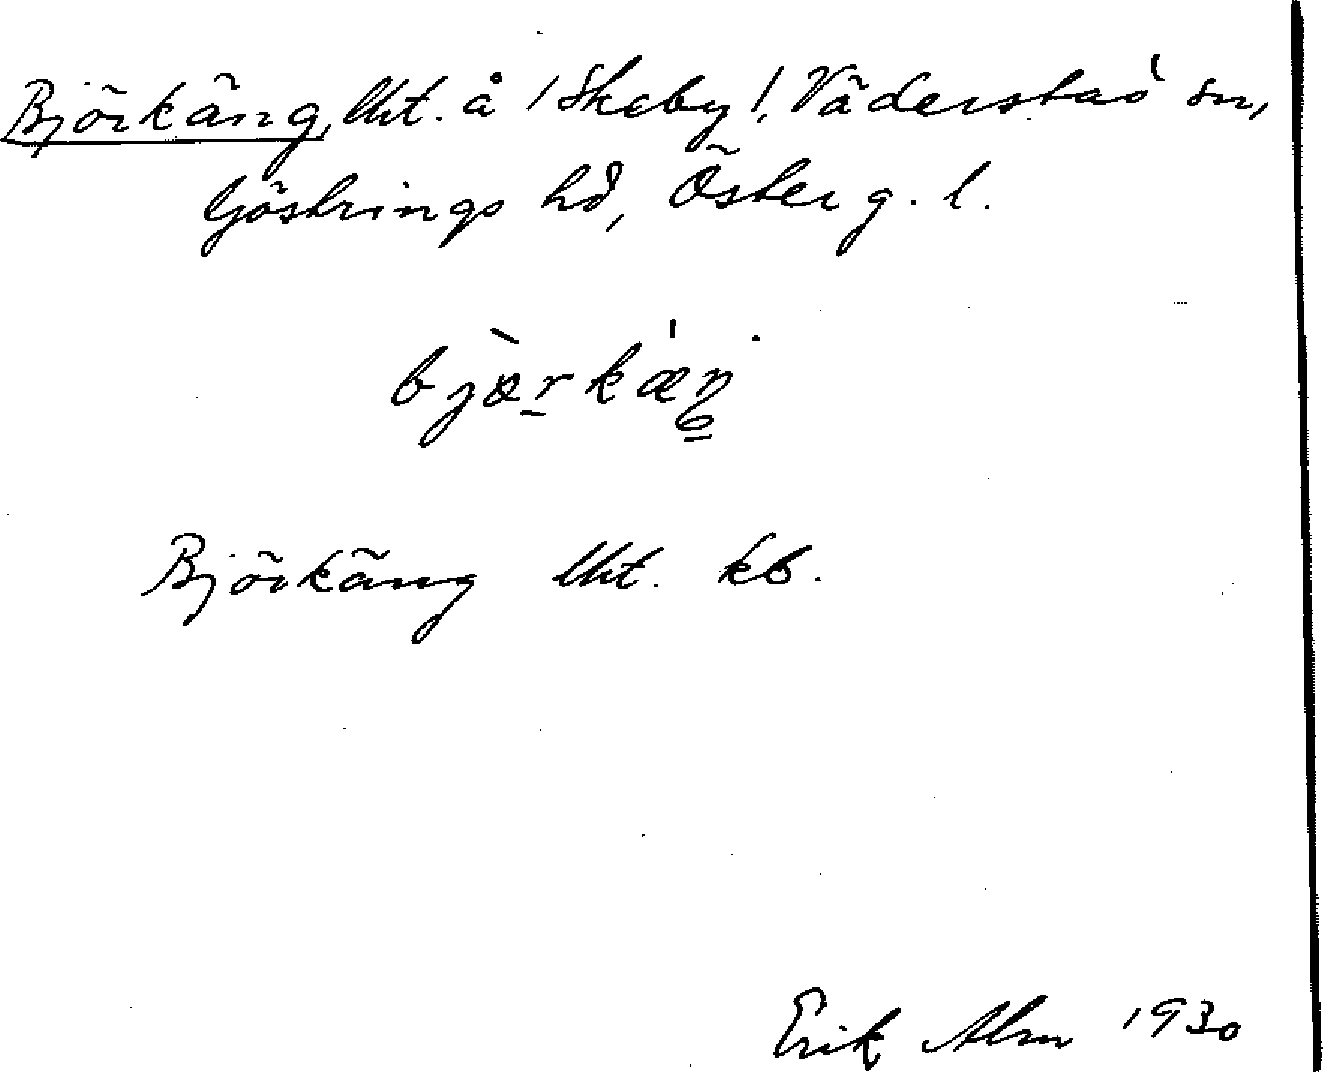 Björkäng, lht. å /Skeby/, Väderstad sn,
Göstrings hd, Österg. l.
bjærkæŋ
Björkäng lht. kb.
Erik Alm 1930